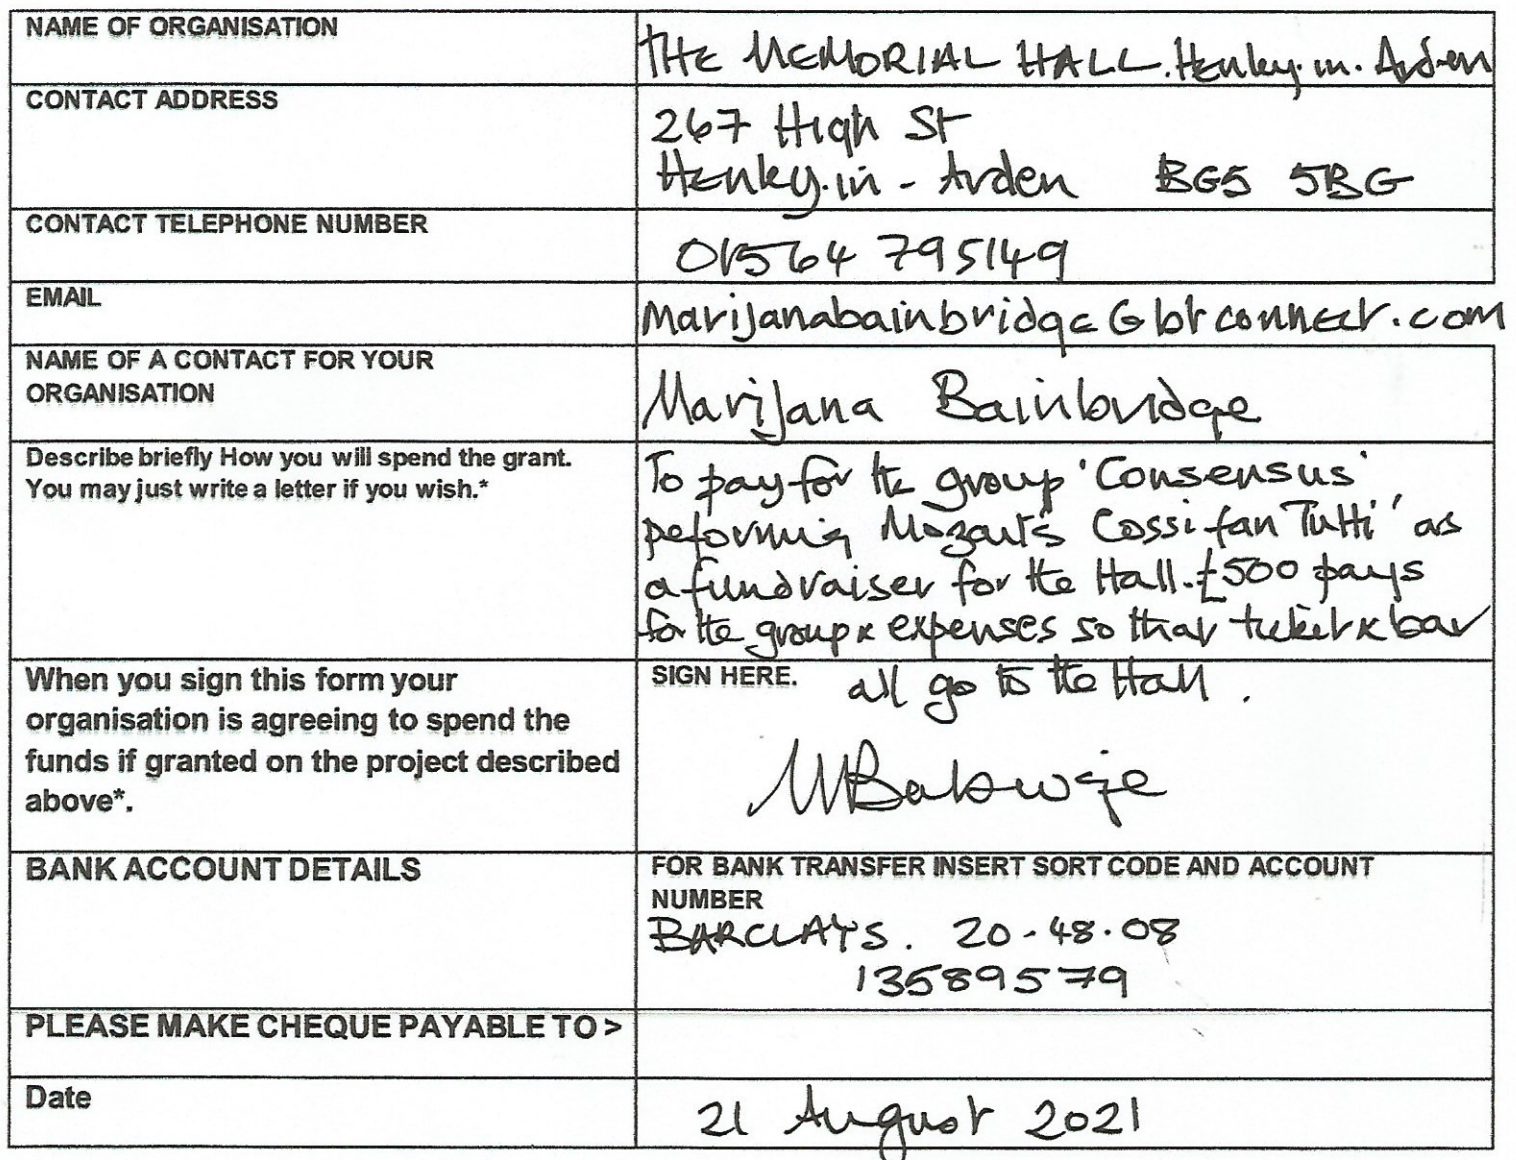 NAME OF ORGANISATION
THE MEMORIAL HALL. Henley.in.Arden
CONTACT ADDRESS
267 High St
Henley.in-Arden BG5 5BG
CONTACT TELEPHONE NUMBER
01564 795149
EMAIL
marijanabainbridge@btconnect.com
NAME OF A CONTACT FOR YOUR
ORGANISATION
Marijana Bainbridge
Describe briefly How you will spend the grant.
You may just write a letter if you wish.*
To pay for the group 'Consensus'
peforming Mozart's Cossi fan Tutti' as
a fundraiser for the Hall. £500 pays
for the group & expenses so that ticket & bar
all go to the Hall.
When you sign this form your
organisation is agreeing to spend the
funds if granted on the project described
above*.
SIGN HERE.
BANK ACCOUNT DETAILS
FOR BANK TRANSFER INSERT SORT CODE AND ACCOUNT
NUMBER
BARCLAYS. 20-48.08
13589579
PLEASE MAKE CHEQUE PAYABLE TO >
Date
21 August 2021